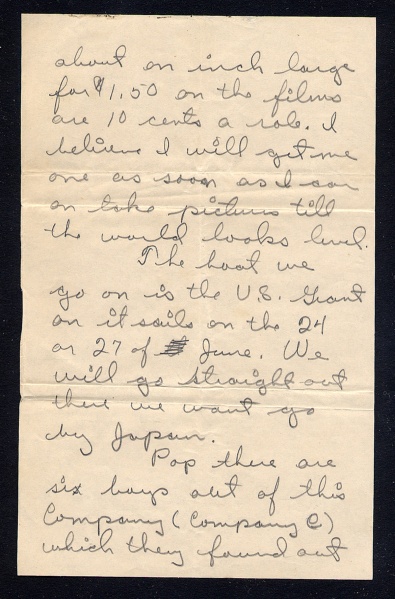 about an inch large
for $1.50 an the films
are 10 cents a role. I
believe I will get me
one as soon as I can
an take pictures till
the world looks level.
The boat we
go on is the U.S. Grant
an it sails on the 24
or 27 of June. We
will go straight out
there we want go
by Japan.
Pop there are
six boys out of this
Company (Company C)
which they found out